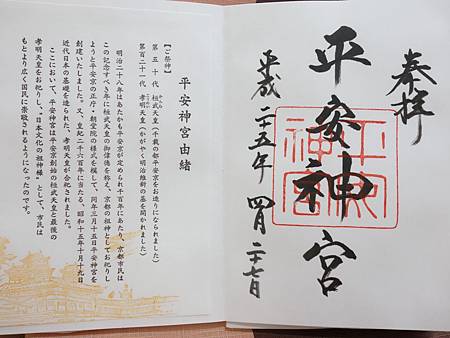 奉拝
平安神宮
平安神宮
平成二十五年 四月二十七日
平安神宮由緒
【ご祭神】
第五十代 桓武天皇(千載の都平安京をお造りになられました)
第百二十一代 孝明天皇(かがやく明治維新の基を開かれました)
明治二十八年はあたかも平安京が定められ千百年にあたり、京都市民は
この記念すべき年に桓武天皇の御偉徳を称え、京都の祖神としてお祀りし
ようと平安京の正庁・朝堂院の様式を模して、同年三月十五日平安神宮を
創建いたしました。又、皇紀二千六百年に当たる、昭和十五年十月十九日
近代日本の基礎を造られた、孝明天皇が合祀されました。
ここにおいて、平安神宮は平安京創始の桓武天皇と最後の
孝明天皇をお祀りし、"日本文化の祖神様"として、市民は
もとより広く国民に崇敬されるようになったのです。